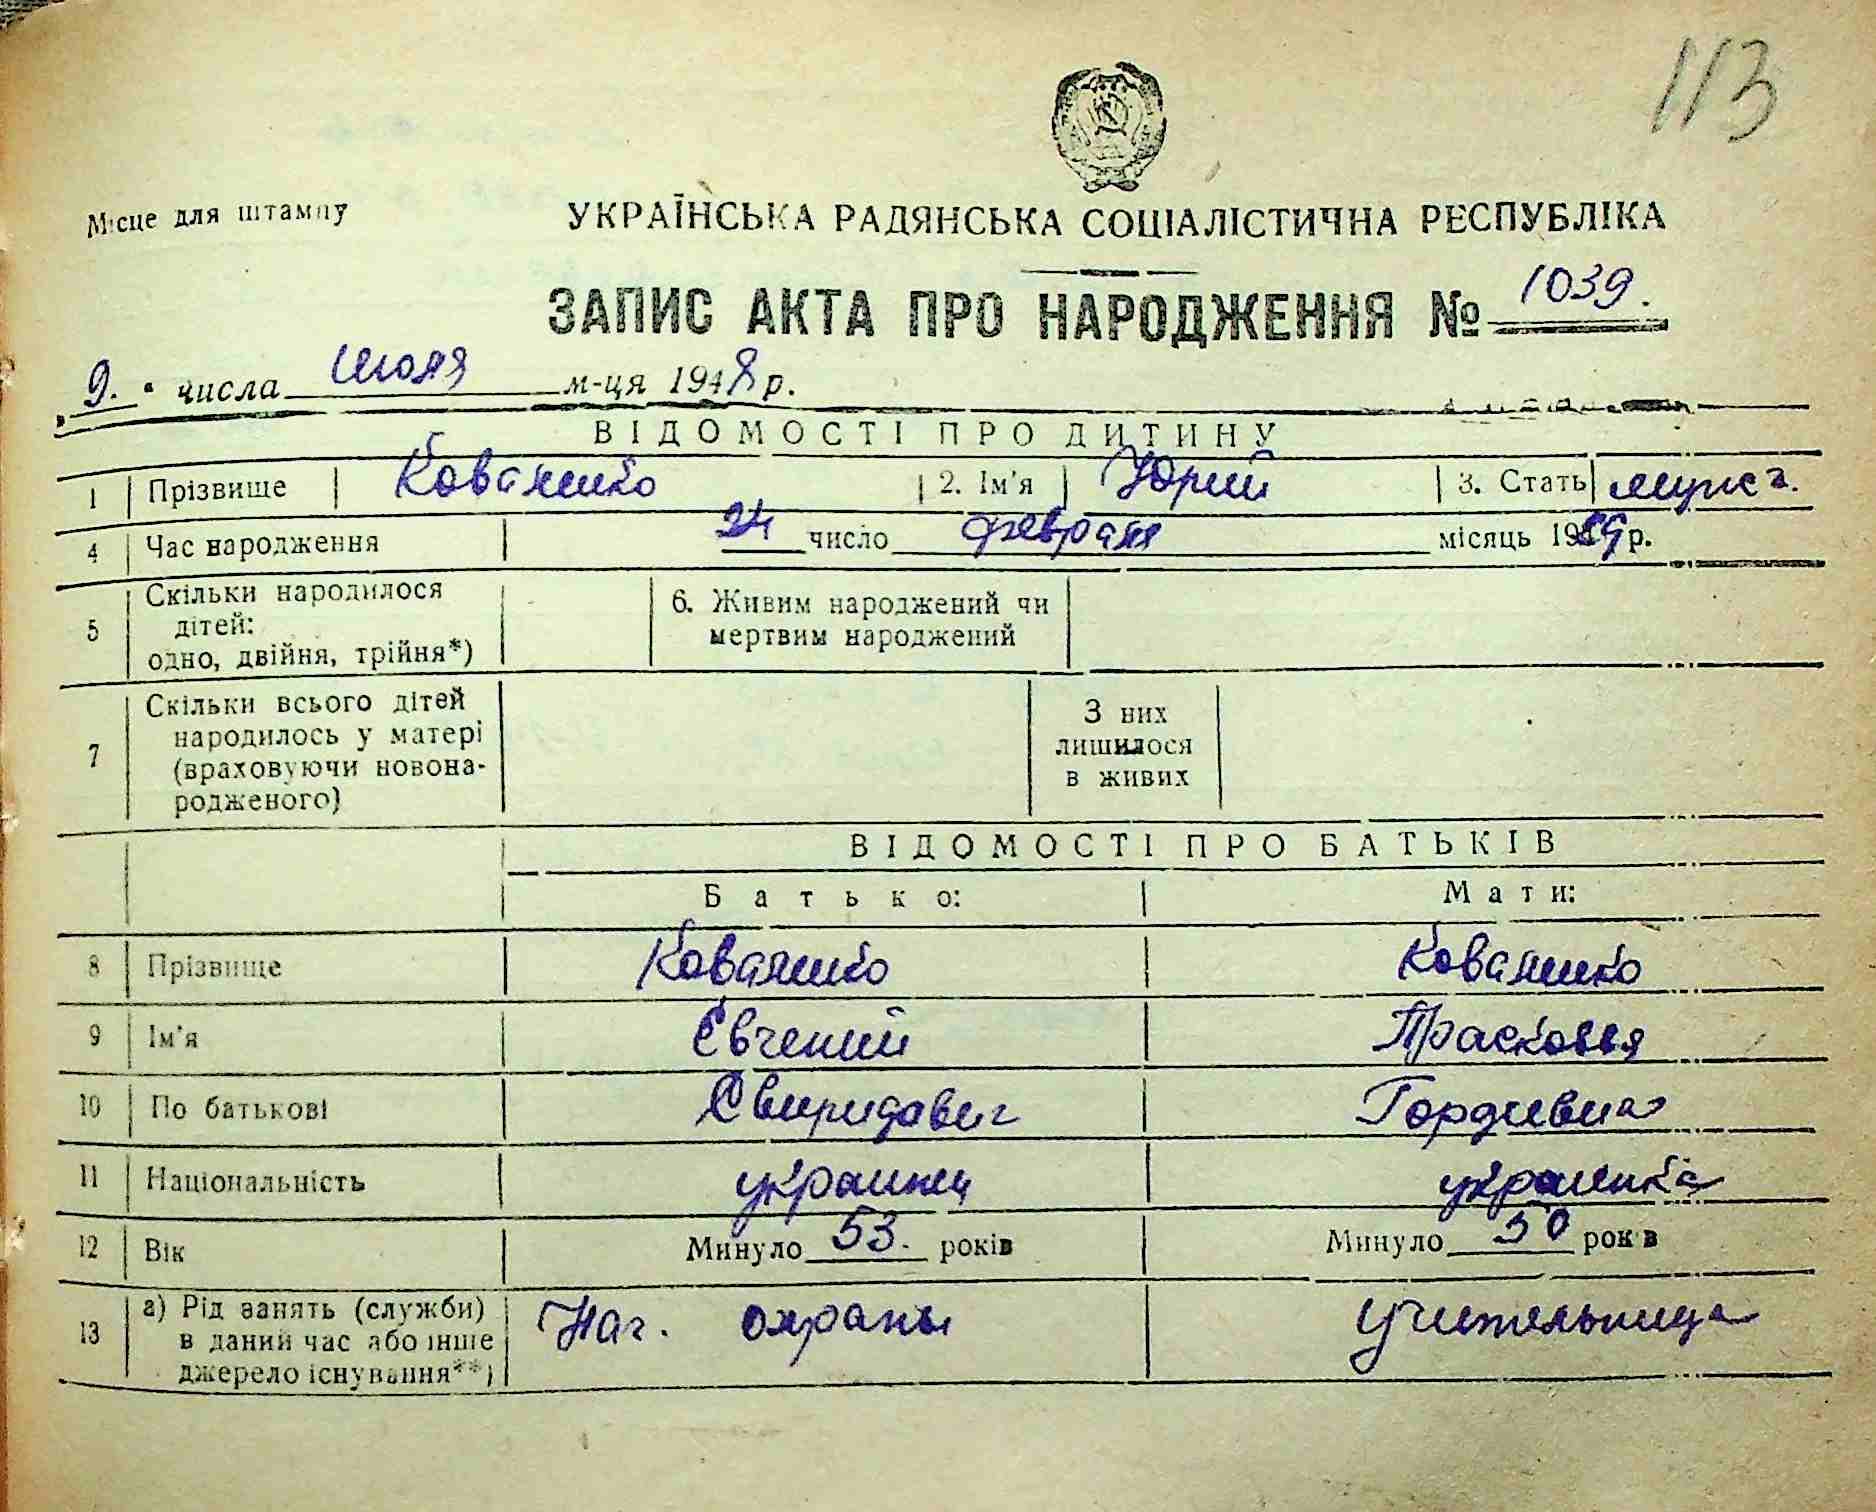 113
Місце для штампу
УКРАЇНСЬКА РАДЯНСЬКА СОЦІАЛІСТИЧНА РЕСПУБЛІКА
ЗАПИС АКТА ПРО НАРОДЖЕННЯ № 1039.
„9." числа июля м-ця 1948 р.
ВІДОМОСТІ ПРО ДИТИНУ
1 Прізвище Коваленко 2. Ім'я Юрий 3. Стать мужс.
4 Час народження 24 число февраля місяць 19 р.
5 Скільки народилося 6. Живим народжений чи
дітей: мертвим народжений
одно, двійня, трійня*)
7 Скільки всього дітей З них
народилось у матері лишилося
(враховуючи новона- в живих
родженого)
ВІДОМОСТІ ПРО БАТЬКІВ
Батько: Мати:
8 Прізвище Коваленко Коваленко
9 Ім'я Евгений Прасковья
10 По батькові Свиридович Гордиевна
11 Національність украинец украинка
12 Вік Минуло 53. років Минуло 50 років
13 а) Рід занять (служби) Нач. охраны Учительница
в даний час або інше
джерело існування**)